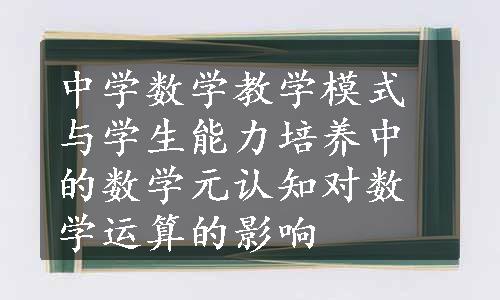 中学数学教学模式
与学生能力培养中
的数学元认知对数
学运算的影响